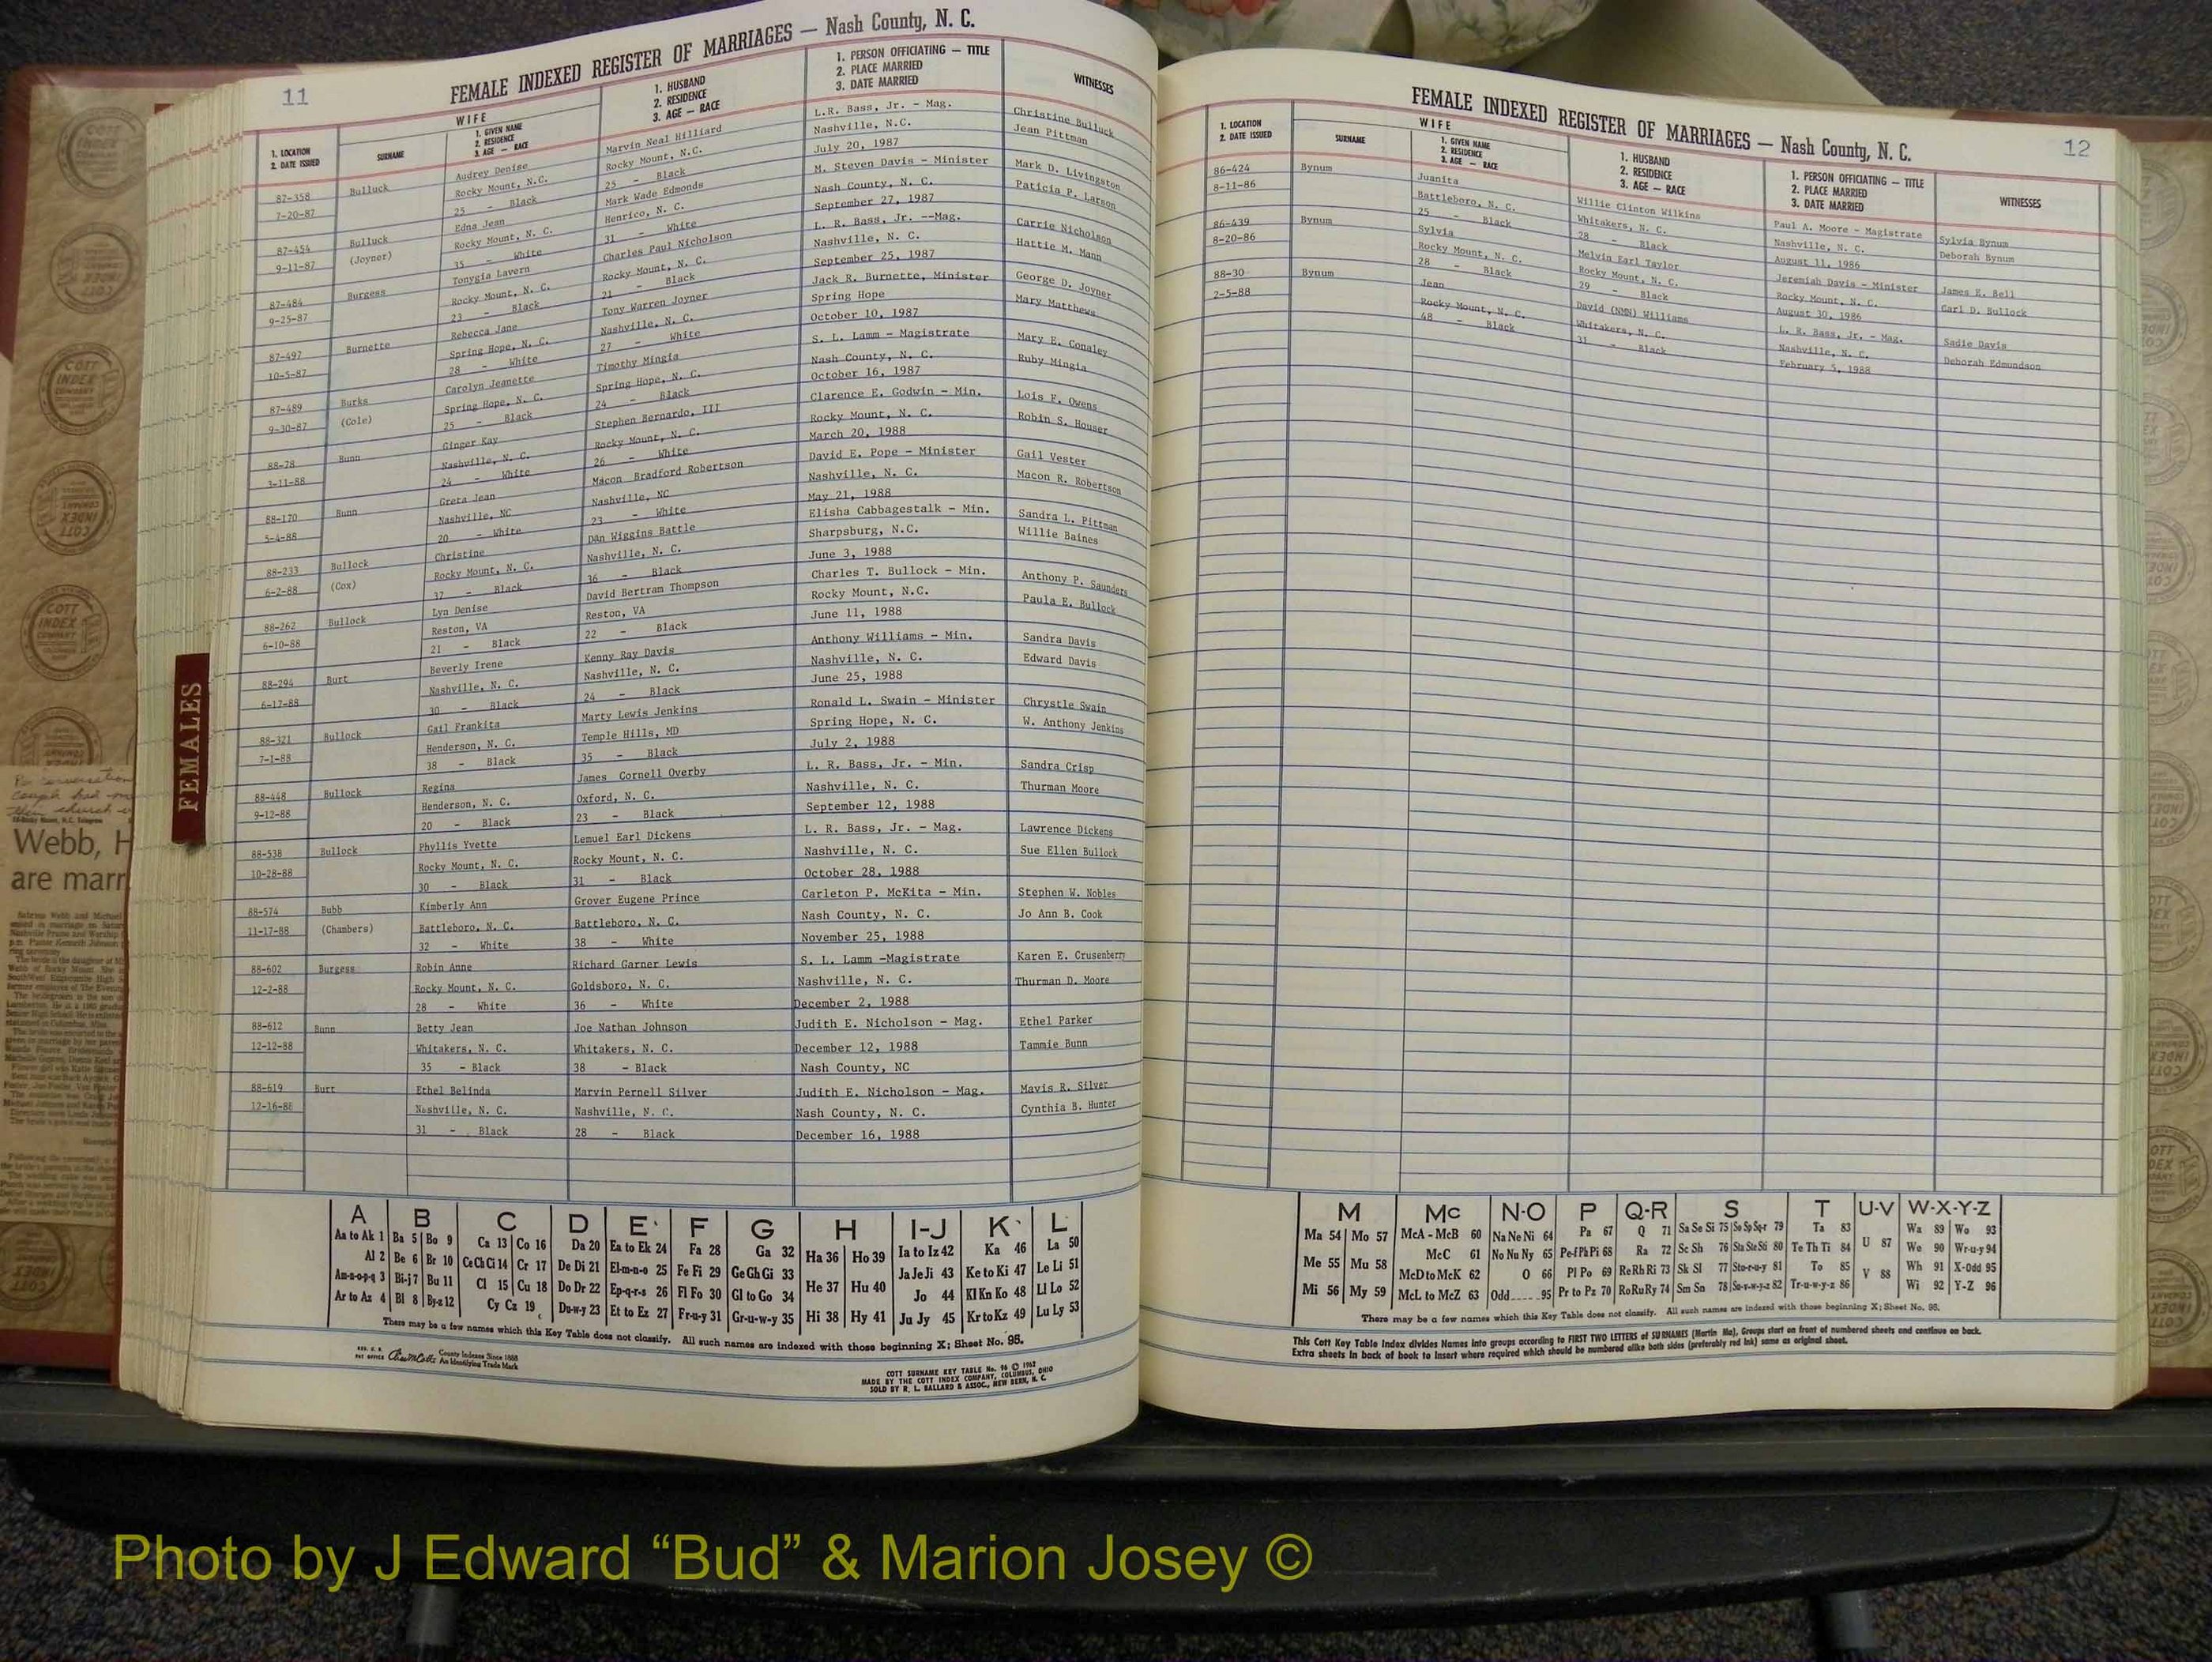 11
FEMALE INDEXED REGISTER OF MARRIAGES — Nash County, N. C.
1. LOCATION
2. DATE ISSUED
WIFE
SURNAME
1. GIVEN NAME
2. RESIDENCE
3. AGE — RACE
1. HUSBAND
2. RESIDENCE
3. AGE — RACE
1. PERSON OFFICIATING — TITLE
2. PLACE MARRIED
3. DATE MARRIED
WITNESSES
87-358 Bulluck Audrey Denise Marvin Neal Hilliard L.R. Bass, Jr. - Mag. Christine Bulluck
7-20-87 Rocky Mount, N.C. Rocky Mount, N.C. Nashville, N.C. Jean Pittman
25 - Black 25 - Black July 20, 1987
87-454 Bulluck Edna Jean Mark Wade Edmonds M. Steven Davis - Minister Mark D. Livingston
9-11-87 (Joyner) Rocky Mount, N. C. Henrico, N. C. Nash County, N. C. Paticia P. Larson
35 - White 31 - White September 27, 1987
87-484 Burgess Tonygia Lavern Charles Paul Nicholson L. R. Bass, Jr. --Mag. Carrie Nicholson
9-25-87 Rocky Mount, N. C. Rocky Mount, N. C. Nashville, N. C. Hattie M. Mann
23 - Black 21 - Black September 25, 1987
87-497 Burnette Rebecca Jane Tony Warren Joyner Jack R. Burnette, Minister George D. Joyner
10-5-87 Spring Hope, N. C. Nashville, N. C. Spring Hope Mary Matthews
28 - White 27 - White October 10, 1987
87-489 Burks Carolyn Jeanette Timothy Mingia S. L. Lamm - Magistrate Mary E. Conaley
9-30-87 (Cole) Spring Hope, N. C. Spring Hope, N. C. Nash County, N. C. Ruby Mingia
25 - Black 24 - Black October 16, 1987
88-78 Bunn Ginger Kay Stephen Bernardo, III Clarence E. Godwin - Min. Lois F. Owens
3-11-88 Nashville, N. C. Rocky Mount, N. C. Rocky Mount, N. C. Robin S. Houser
24 - White 26 - White March 20, 1988
88-170 Bunn Greta Jean Macon Bradford Robertson David E. Pope - Minister Gail Vester
5-4-88 Nashville, NC Nashville, NC Nashville, N. C. Macon R. Robertson
20 - White 23 - White May 21, 1988
88-233 Bullock Christine Dan Wiggins Battle Elisha Cabbagestalk - Min. Sandra L. Pittman
6-2-88 (Cox) Rocky Mount, N. C. Nashville, N. C. Sharpsburg, N.C. Willie Baines
37 - Black 36 - Black June 3, 1988
88-262 Bullock Lyn Denise David Bertram Thompson Charles T. Bullock - Min. Anthony P. Saunders
6-10-88 Reston, VA Reston, VA Rocky Mount, N.C. Paula E. Bullock
21 - Black 22 - Black June 11, 1988
88-294 Burt Beverly Irene Kenny Ray Davis Anthony Williams - Min. Sandra Davis
6-17-88 Nashville, N. C. Nashville, N. C. Nashville, N. C. Edward Davis
30 - Black 24 - Black June 25, 1988
88-321 Bullock Gail Frankita Marty Lewis Jenkins Ronald L. Swain - Minister Chrystle Swain
7-1-88 Henderson, N. C. Temple Hills, MD Spring Hope, N. C. W. Anthony Jenkins
38 - Black 35 - Black July 2, 1988
88-448 Bullock Regina James Cornell Overby L. R. Bass, Jr. - Min. Sandra Crisp
9-12-88 Henderson, N. C. Oxford, N. C. Nashville, N. C. Thurman Moore
20 - Black 23 - Black September 12, 1988
88-538 Bullock Phyllis Yvette Lemuel Earl Dickens L. R. Bass, Jr. - Mag. Lawrence Dickens
10-28-88 Rocky Mount, N. C. Rocky Mount, N. C. Nashville, N. C. Sue Ellen Bullock
30 - Black 31 - Black October 28, 1988
88-574 Bubb Kimberly Ann Grover Eugene Prince Carleton P. McKita - Min. Stephen W. Nobles
11-17-88 (Chambers) Battleboro, N. C. Battleboro, N. C. Nash County, N. C. Jo Ann B. Cook
32 - White 38 - White November 25, 1988
88-602 Burgess Robin Anne Richard Garner Lewis S. L. Lamm -Magistrate Karen E. Crusenberry
12-2-88 Rocky Mount, N. C. Goldsboro, N. C. Nashville, N. C. Thurman D. Moore
28 - White 36 - White December 2, 1988
88-612 Bunn Betty Jean Joe Nathan Johnson Judith E. Nicholson - Mag. Ethel Parker
12-12-88 Whitakers, N. C. Whitakers, N. C. December 12, 1988 Tammie Bunn
35 - Black 38 - Black Nash County, NC
88-619 Burt Ethel Belinda Marvin Pernell Silver Judith E. Nicholson - Mag. Mavis R. Silver
12-16-88 Nashville, N. C. Nashville, N. C. Nash County, N. C. Cynthia B. Hunter
31 - Black 28 - Black December 16, 1988
A B C D E F G H I-J K L
Aa to Ak 1 Ba 5 Bo 9 Ca 13 Co 16 Da 20 Ea to Ek 24 Fa 28 Ga 32 Ha 36 Ho 39 Ia to Iz 42 Ka 46 La 50
Al 2 Be 6 Br 10 Ce Ch Ci 14 Cr 17 De Di 21 El-m-n-o 25 Fe Fi 29 Ge Gh Gi 33 He 37 Hu 40 Ja Je Ji 43 Ke to Ki 47 Le Li 51
Am-n-o-p-q 3 Bi-j 7 Bu 11 Cl 15 Cu 18 Do Dr 22 Ep-q-r-s 26 Fl Fo 30 Gl to Go 34 Jo 44 Kl Kn Ko 48 Ll Lo 52
Ar to Az 4 Bl 8 By-z 12 Cy Cz 19 Du-w-y 23 Et to Ez 27 Fr-u-y 31 Gr-u-w-y 35 Hi 38 Hy 41 Ju Jy 45 Kr to Kz 49 Lu Ly 53
There may be a few names which this Key Table does not classify. All such names are indexed with those beginning X; Sheet No. 95.
County Indexes Since 1888
An Identifying Trade Mark
COTT SURNAME KEY TABLE No. 96 © 1962
MADE BY THE COTT INDEX COMPANY, COLUMBUS, OHIO
SOLD BY R. L. BALLARD & ASSOC., NEW BERN, N. C.
FEMALES
Webb, H
are marr
12
FEMALE INDEXED REGISTER OF MARRIAGES — Nash County, N. C.
1. LOCATION
2. DATE ISSUED
WIFE
SURNAME
1. GIVEN NAME
2. RESIDENCE
3. AGE — RACE
1. HUSBAND
2. RESIDENCE
3. AGE — RACE
1. PERSON OFFICIATING — TITLE
2. PLACE MARRIED
3. DATE MARRIED
WITNESSES
86-424 Bynum Juanita Willie Clinton Wilkins Paul A. Moore - Magistrate Sylvia Bynum
8-11-86 Battleboro, N. C. Whitakers, N. C. Nashville, N. C. Deborah Bynum
25 - Black 28 - Black August 11, 1986
86-439 Bynum Sylvia Melvin Earl Taylor Jeremiah Davis - Minister James E. Bell
8-20-86 Rocky Mount, N. C. Rocky Mount, N. C. Rocky Mount, N. C. Carl D. Bullock
28 - Black 29 - Black August 30, 1986
88-30 Bynum Jean David (NMN) Williams L. R. Bass, Jr. - Mag. Sadie Davis
2-5-88 Rocky Mount, N. C. Whitakers, N. C. Nashville, N. C. Deborah Edmundson
48 - Black 31 - Black February 5, 1988
M Mc N-O P Q-R S T U-V W-X-Y-Z
Ma 54 Mo 57 McA - McB 60 Na Ne Ni 64 Pa 67 Q 71 Sa Se Si 75 So Sp Sq-r 79 Ta 83 U 87 Wa 89 Wo 93
Me 55 Mu 58 McC 61 No Nu Ny 65 Pe-f Ph Pi 68 Ra 72 Sc Sh 76 Sta Ste Sti 80 Te Th Ti 84 We 90 Wr-u-y 94
McD to McK 62 O 66 Pl Po 69 Re Rh Ri 73 Sk Sl 77 Sto-r-u-y 81 To 85 V 88 Wh 91 X-Odd 95
Mi 56 My 59 McL to McZ 63 Odd 95 Pr to Pz 70 Ro Ru Ry 74 Sm Sn 78 Su-v-w-y-z 82 Tr-u-w-y-z 86 Wi 92 Y-Z 96
There may be a few names which this Key Table does not classify. All such names are indexed with those beginning X; Sheet No. 95.
This Cott Key Table Index divides Names into groups according to FIRST TWO LETTERS of SURNAMES (Martin Ma), Groups start on front of numbered sheets and continue on back.
Extra sheets in back of book to insert where required which should be numbered alike both sides (preferably red ink) same as original sheet.
Photo by J Edward “Bud” & Marion Josey ©